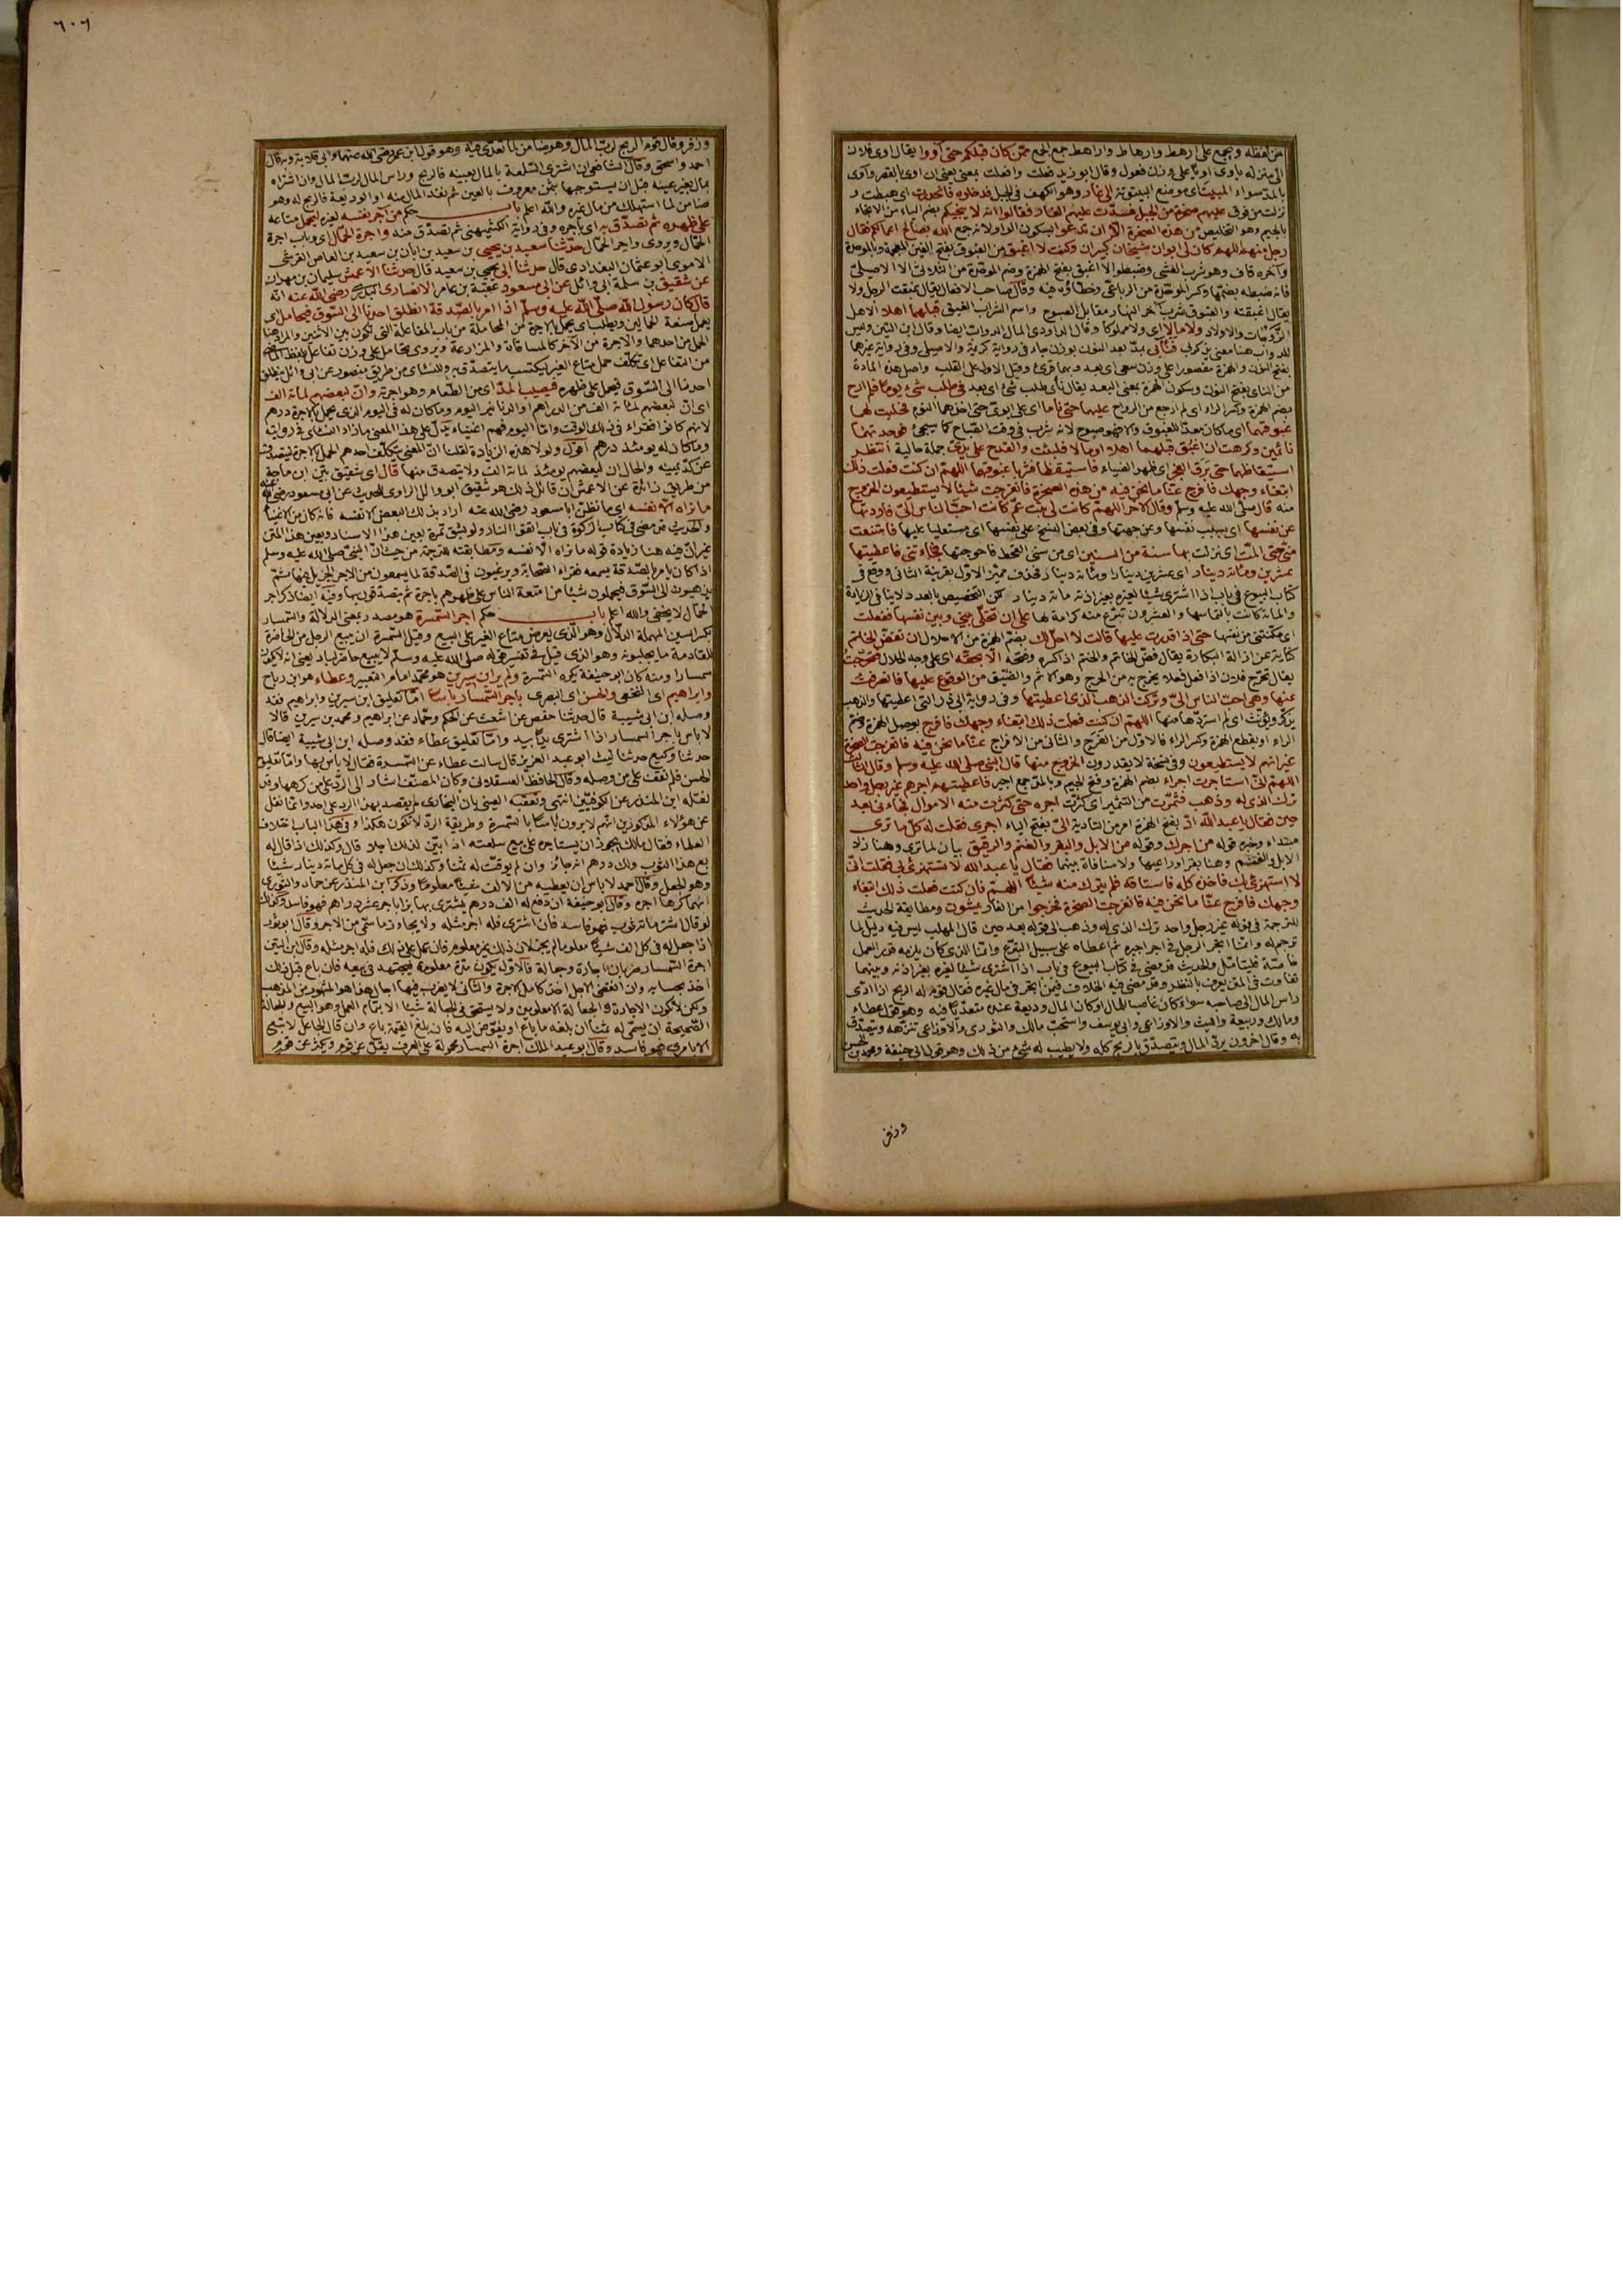 من لفظه ويجمع على ارهط وارهاط واراهط جمع الجمع ممن كان قبلكم حتى أووا يقال اوى فلان
الى منزله ياوى اويا على وزن فعول وقال ابو زيد فعلت وافعلت بمعنى
بالمد سواء المبيت اى موضع البيتوتة الى غار وهو الكهف فى الجبل فدخلوه فانحدرت اى هبطت و
نزلت من فوق عليهم صخرة من الجبل فسدت عليهم الغار فقالوا انه لا ينجيكم بضم الياء من الانجاء
بالجيم وهو التخليص من هذه الصخرة الا ان تدعوا بسكون الواو لانه جمع الله بصالح اعمالكم فقال
رجل منهم اللهم كان لى ابوان شيخان كبيران وكنت لا اغبق من الغبوق بفتح الغين المعجمة وبالموحدة
وآخره قاف وهو شرب العشى وضبطوا لا اغبق بفتح الهمزة وضم الموحدة من الثلاثى الا الاصيلى
فانه ضبطه بضمها وكسر الموحدة من الرباعى وخطاؤه فيه وقال صاحب الافعال يقال غبقت الرجل ولا
يقال اغبقته والغبوق شرب آخر النهار مقابل الصبوح واسم الشراب الغبيق قبلهما اهلا الاهل
الزوجات والاولاد ولا مالا اى ولا مملوكا وقال الداودى المال الدواب ايضا وقال ابن التين وليس
للدواب هنا معنى يذكر فنأى بمد بعد النون بوزن جاء فى رواية كريمة والاصيلى وفى رواية غيرهما
بفتح النون والهمزة مقصورا على وزن سعى اى بعد وبهما قرئ وقيل الاول على القلب واصل هذه المادة
من النأى بفتح النون وسكون الهمزة بمعنى البعد يقال نأى طلب شئ اى بعد فى طلب شئ يوما فلم ارح
بضم الهمزة وكسر الراء اى لم ارجع من الرواح عليهما حتى ناما اى على ابوى حتى اخذهما النوم فحلبت لهما
غبوقهما اى ما كان معدا للغبوق فوجدتهما
نائمين وكرهت ان اغبق قبلهما اهلا او مالا فلبثت والقدح على يدى جملة حالية أنتظر
استيقاظهما حتى برق الفجر اى ظهر الضياء فاستيقظا فشربا غبوقهما اللهم ان كنت فعلت ذلك
ابتغاء وجهك فافرج عنا ما نحن فيه من هذه الصخرة فانفرجت شيئا لا يستطيعون الخروج
منه قال صلى الله عليه وسلم وقال الآخر اللهم كانت لى بنت عم كانت احب الناس الى فاردتها
عن نفسها اى بسبب نفسها وعن جهتها وفى بعض النسخ على نفسها اى مستعليا عليها فامتنعت
منى حتى المت اى نزلت بها سنة من السنين اى من سنى القحط فاحوجتها فجاءتنى فاعطيتها
عشرين ومائة دينار اى عشرين دينارا ومائة دينار فحذف مميز الاول بقرينة الثانى ووقع فى
كتاب البيوع فى باب اذا اشترى شيئا لغيره بغير اذنه مائة دينار لكن التخصيص بالعدد لا ينافى الزيادة
والمائة كانت بالتماسها والعشرون تبرع منه كرامة لها على ان تخلى بينى وبين نفسها ففعلت
اى مكنتنى من نفسها حتى اذا قدرت عليها قالت لا احل لك بضم الهمزة من الاحلال ان تفض الخاتم
كناية عن ازالة البكارة يقال فض الخاتم والختم اذا كسره وفتحه الا بحقه اى على وجه الحلال فتحرجت
يقال تحرج فلان اذا فعل فعلا يخرج به من الحرج وهو الاثم والضيق من الوقوع عليها فانصرفت
عنها وهى احب الناس الى وتركت الذهب الذى اعطيتها وفى رواية ابى ذر التى اعطيتها والذهب
يذكر ويؤنث اى لم استردها منها اللهم ان كنت فعلت ذلك ابتغاء وجهك فافرج بوصل الهمزة وضم
الراء او بقطع الهمزة وكسر الراء فالاول من الفرج والثانى من الافراج عنا ما نحن فيه فانفرجت الصخرة
غير انهم لا يستطيعون وفى نسخة لا يقدرون الخروج منها قال النبى صلى الله عليه وسلم وقال الثالث
اللهم انى استاجرت اجراء بضم الهمزة وفتح الجيم وبالمد جمع اجير فاعطيتهم اجرهم غير رجل واحد
ترك الذى له وذهب فثمرت من التثمير اى كثرت اجره حتى كثرت منه الاموال فجاءنى بعد
حين فقال يا عبد الله اد بفتح الهمزة امر من التادية الى بفتح الياء اجرى فقلت له كل ما ترى
مبتداء وخبره قوله من اجرك وقوله من الابل والبقر والغنم والرقيق بيان لما ترى وهنا زاد
الابل والغنم وهنا بقر اوراعيها ولا منافاة بينهما فقال يا عبد الله لا تستهزئ بى فقلت انى
لا استهزئ بك فاخذه كله فاستاقه فلم يترك منه شيئا اللهم فان كنت فعلت ذلك ابتغاء
وجهك فافرج عنا ما نحن فيه فانفرجت الصخرة فخرجوا من الغار يمشون ومطابقة الحديث
للترجمة فى قوله غير رجل واحد ترك الذى له وذهب الى قوله بعد حين قال المهلب ليس فيه دليل لما
ترجم له وانما اتجر الرجل فى اجر اجيره ثم اعطاه على سبيل التبرع وانما الذى كان يلزمه قدر العمل
خاصة فليتامل والحديث قد مضى فى كتاب البيوع فى باب اذا اشترى شيئا لغيره بغير اذنه وبينهما
تفاوت فى المتن يعرف بالنظر وقد مضى فيه الخلاف فيمن اتجر فى مال غيره فقال قوم له الربح اذا ادى
راس المال الى صاحبه سواء كان غاصب المال او كان المال وديعة عنده متعديا فيه وهو قول عطاء
ومالك وربيعة والليث والاوزاعى وابى يوسف واستحب مالك والثورى والاوزاعى تنزهه ويتصدق
به وقال آخرون يرد المال ويتصدق بالربح كله ولا يطيب له شئ من ذلك وهو قول ابى حنيفة ومحمد بن الحسن
وزفر
٦٠٦
وزفر وقال قوم الربح لرب المال وهو ضامن لما تعدى فيه وهو قول ابن عمر رضى الله عنهما وابى قلابة وبه قال
احمد واسحق وقال الشافعى ان اشترى السلعة بالمال بعينه فالربح وراس المال لرب المال وان اشتراه
بمال بغير عينه قبل ان يستوجبها بثمن معروف بالعين ثم نقد المال منه او الوديعة فالربح له وهو
ضامن لما استهلك من مال غيره والله اعلم باب حكم من آجر نفسه لغيره ليحمل متاعه
على ظهره ثم تصدق به اى باجره وفى رواية الكشميهنى ثم تصدق منه واجرة الحمال اى وباب اجرة
الحمال ويروى واجر الحمال حدثنا سعيد بن يحيى بن سعيد بن ابان بن سعيد بن العاص القرشى
الاموى ابو عثمان البغدادى قال حدثنا ابى يحيى بن سعيد قال حدثنا الاعمش سليمان بن مهران
عن شقيق بن سلمة ابى وائل عن ابى مسعود عقبة بن عامر الانصارى البدرى رضى الله عنه انه
قال كان رسول الله صلى الله عليه وسلم اذا امر بالصدقة انطلق احدنا الى السوق فيحامل اى
يعمل صنعة الحمالين ويطلب ان يحمل بالاجرة من المحاملة من باب المفاعلة التى تكون بين الاثنين والمراد هنا
الحمل من احدهما والاجرة من الآخر كالمساقاة والمزارعة ويروى تحامل على وزن تفاعل بلفظ الماضى
من التفاعل اى تكلف حمل متاع الغير ليكتسب ما يتصدق به وللنسائى من طريق منصور عن ابى وائل ينطلق
احدنا الى السوق فيحمل على ظهره فيصيب المد اى من الطعام وهو اجرته وان لبعضهم لمائة الف
اى ان لبعضهم لمائة الف من الدراهم او الدنانير اليوم وما كان له فى اليوم الذى يحمل بالاجرة درهم
لانهم كانوا فقراء فى ذلك الوقت واما اليوم فهم اغنياء يدل على هذا المعنى ما زاد النسائى فى روايته
وما كان له يومئذ درهم اقول ولولا هذه الزيادة لقلنا ان المعنى يتكلف احدهم الحمل بالاجرة ليتصدق
عن كد يمينه والحال ان لبعضهم يومئذ لمائة الف ولا يتصدق منها قال اى شقيق بين ابن ماجة
من طريق زائدة عن الاعمش ان قائل ذلك هو شقيق ابو وائل الراوى للحديث عن ابى مسعود رضى الله عنه
ما نراه الا نفسه اى ما نظن ابا مسعود رضى الله عنه اراد بذلك البعض الا نفسه فانه كان من الاغنياء
والحديث قد مضى فى كتاب الزكوة فى باب اتقوا النار ولو بشق تمرة بعين هذا الاسناد وبعين هذا المتن
غير ان فيه هنا زيادة قوله ما نراه الا نفسه ومطابقته للترجمة من حيث ان النبى صلى الله عليه وسلم
اذا كان يامر بالصدقة يسمعه فقراء الصحابة ويرغبون فى الصدقة لما يسمعون من الاجر الجزيل فيها ثم
يذهبون الى السوق فيحملون شيئا من امتعة الناس على ظهورهم باجرة ثم يتصدقون بها وفيه ايضا ذكر اجر
الحمال لا يخفى والله اعلم باب حكم اجر السمسرة هو مصدر بمعنى الدلالة والسمسار
بكسر السين المهملة الدلال وهو الذى يعرض متاع الغير على البيع وقيل السمسرة ان يبيع الرجل من الحاضرة
للقادمة ما يجلبونه وهو الذى قيل فى تفسير قوله صلى الله عليه وسلم لا يبيع حاضر لباد يعنى انه لا يكون
سمسارا ومنه كان ابو حنيفة يكره السمسرة ولم ير ابن سيرين هو محمد امام التعبير وعطاء هو ابن رباح
وابراهيم اى النخعى والحسن اى البصرى باجر السمسار بأسا اما تعليق ابن سيرين وابراهيم فقد
وصله ابن ابى شيبة قال حدثنا حفص عن اشعث عن الحكم وحماد عن ابراهيم ومحمد بن سيرين قالا
لا باس باجر السمسار اذا اشترى يدا بيد واما تعليق عطاء فقد وصله ابن ابى شيبة ايضا قال
حدثنا وكيع حدثنا ليث ابو عبد العزيز قال سالت عطاء عن السمسرة فقال لا باس بها واما تعليق
الحسن فلم نقف على من وصله وقال الحافظ العسقلانى وكان المصنف اشار الى الرد على من كرهها وقد
نقله ابن المنذر عن الكوفيين انتهى وتعقبه العينى بان البخارى لم يقصد بهذا الرد على احد وانما نقل
عن هؤلاء المذكورين انهم لا يرون بأسا بالسمسرة وطريقة الرد لا تكون هكذا وفى هذا الباب اختلاف
العلماء فقال مالك يجوز ان يستاجره على بيع سلعته اذا بين لذلك اجلا قال وكذلك اذا قال له
بع هذا الثوب ولك درهم انه جائز وان لم يوقت له ثمنا وكذلك ان جعل له فى كل مائة دينار شيئا
وهو الجعل وقال احمد لا باس ان يعطيه من الالف شيئا معلوما وذكر ابن المنذر عن حماد والثورى
انهما كرها اجره وقال ابو حنيفة ان دفع له الف درهم يشترى بها بزا باجر عشرة دراهم فهو فاسد وكذلك
لو قال اشتر مائة ثوب فهو فاسد فان اشترى فله اجر مثله ولا يجاوز ما سمى من الاجر وقال ابو ثور
اذا جعل له فى كل الف شيئا معلوما لم يجز لان ذلك غير معلوم فان عمل على ذلك فله اجر مثله وقال ابن التين
اجرة السمسار ضربان اجارة وجعالة فالاول يكون مدة معلومة فيجتهد فى بيعه فان باع قبل ذلك
اخذ بحسابه وان انقضى الاجل اخذ كامل الاجرة والثانى لا يضرب فيها اجل هذا هو المشهور من المذهب
ولكن لا تكون الاجارة والجعالة الا معلومين ولا يستحق فى الجعالة شيئا الا بتمام العمل وهو البيع والجعالة
الصحيحة ان يسمى له ثمنا ان بلغه ما باع او يفوض اليه فان بلغ القيمة باع وان قال الجاعل لا تبع
الا بامرى فهو فاسد وقال ابو عبد الملك اجرة السمسار محمولة على العرف يقل عن قوم ويكثر عن قوم